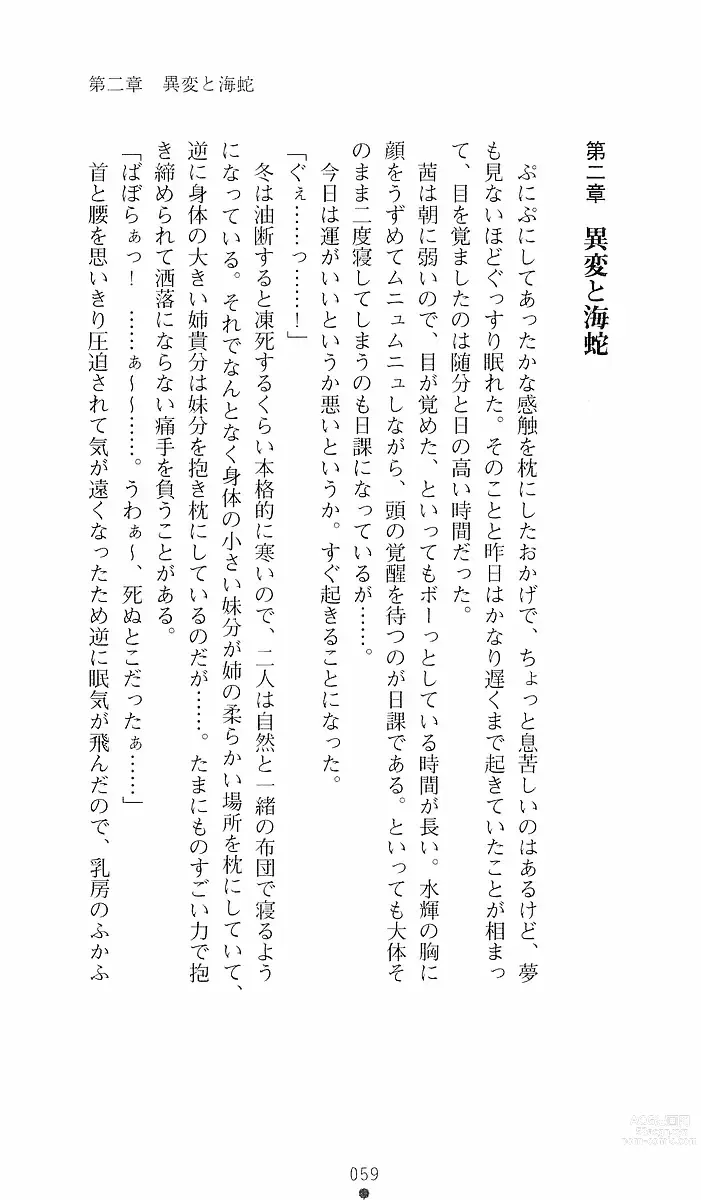 第二章　異変と海蛇
第二章　異変と海蛇
　ぷにぷにしてあったかな感触を枕にしたおかげで、ちょっと息苦しいのはあるけど、夢
も見ないほどぐっすり眠れた。そのことと昨日はかなり遅くまで起きていたことが相まっ
て、目を覚ましたのは随分と日の高い時間だった。
　茜は朝に弱いので、目が覚めた、といってもボーっとしている時間が長い。水輝の胸に
顔をうずめてムニュムニュしながら、頭の覚醒を待つのが日課である。といっても大体そ
のまま二度寝してしまうのも日課になっているが……。
　今日は運がいいというか悪いというか。すぐ起きることになった。
「ぐぇ……っ……！」
　冬は油断すると凍死するくらい本格的に寒いので、二人は自然と一緒の布団で寝るよう
になっている。それでなんとなく身体の小さい妹分が姉の柔らかい場所を枕にしていて、
逆に身体の大きい姉貴分は妹分を抱き枕にしているのだが……。たまにものすごい力で抱
き締められて洒落にならない痛手を負うことがある。
「ばぼらぁっ！　……ぁ〜〜……。うわぁ〜、死ぬとこだったぁ……」
　首と腰を思いきり圧迫されて気が遠くなったため逆に眠気が飛んだので、乳房のふかふ
059